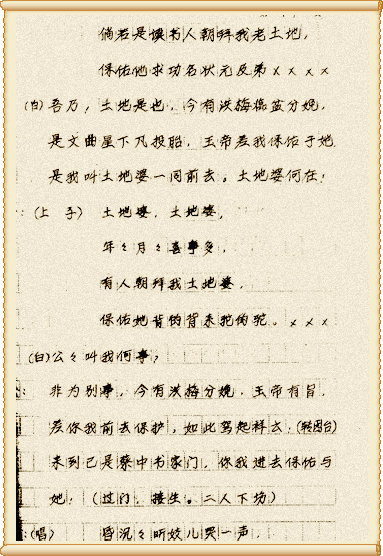 倘若是读书人朝拜我老土地，
保佑他求功名状元及第××××
(白)吾乃，土地是也，今有洪梅临盆分娩，
是文曲星下凡投胎，玉帝差我保佑于她
是我叫土地婆一同前去。土地婆何在：
：(上 于) 土地婆，土地婆，
年々月々喜事多，
有人朝拜我土地婆，
保佑她背的背来驼的驼。×××
(白)公々叫我何事，
：非为别事，今有洪梅分娩，玉帝有旨，
差你我前去保护，如此驾起祥云：(转图台)
来到已是蔡中书家门，你我进去保佑与
她：(过门，接生。二人下场)
：(唱) 昏沉々听姣儿哭一声，